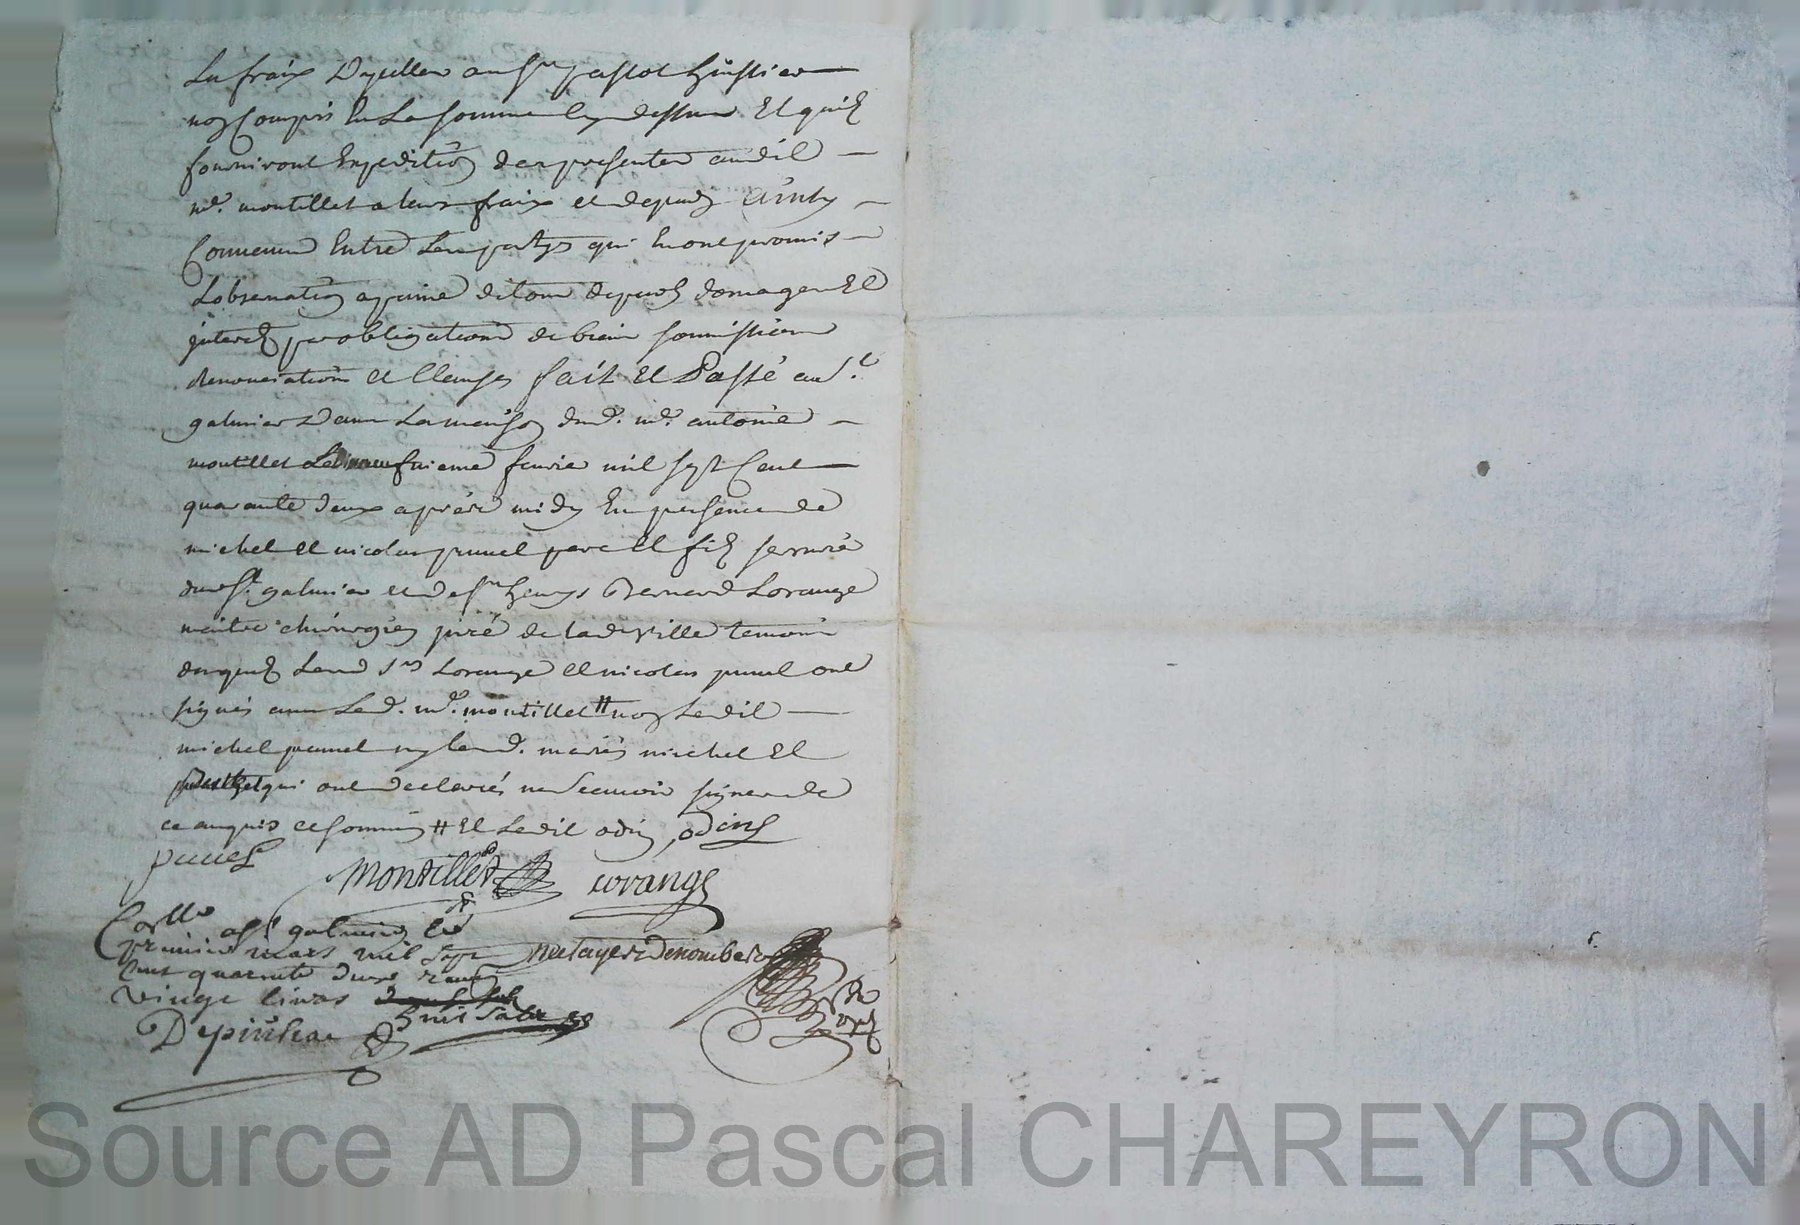 Les fraix d'yceller au Sr pastot huissier
non Compris En La somme Cy dessus Et quils
fourniront Expedition des presentes audit
me. montillet a leurs fraix et depends Ainsy
Convenu Entre Les partys qui En ont promis
Lobservation a peine de tous depends domages Et
interests par obligations de biens soumissions
Renonciations et Clauses fait Et Passé a St.
galmier Dans La maison dud. me. antoine
montillet Le neufvieme fevrier mil sept Cent
quarante deux apres midy En presence de
michel et nicolas prunel pere et fils serrurie
dud St. galmier et de sr henrys Bernard Lorange
maitre chirurgien juré de lad. ville temoins
desquels Lesd. Srs Lorange et nicolas prunel ont
signés avec Led. me. montillet # non Ledit
michel prunel ny lesd. mariés michel Et
qui ont declarés ne Scavoir signer de
ce enquis et sommés # Et Ledit odin odin
prunel
Montillet Lorange
Conlle a St galmier le
premier mars mil sept
Cent quarante deux Reçu
vingt livres
huit sols
Depinhac